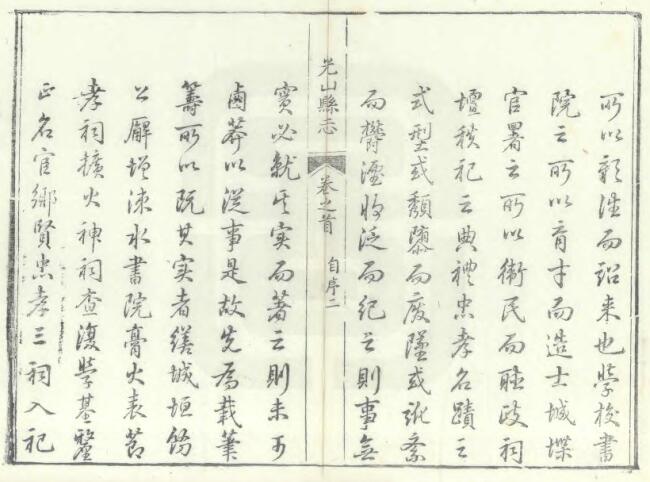 所以彰往而詔来也学校書
院之所以育才而造士城堞
官署之所以衛民而聴政祠
壇秩祀之典禮忠孝名蹟之
式型或頽隳而廢墜或訛紊
而欝湮將泛而紀之則事無
光山縣志 卷之首 自序二
實必就其实而著之則未可
鹵莽以從事是故先為载筆
籌所以既其实者繕城垣飭
公廨增涑水書院膏火表節
孝祠擴火神祠查復学基釐
正名宦鄉賢忠孝三祠入祀